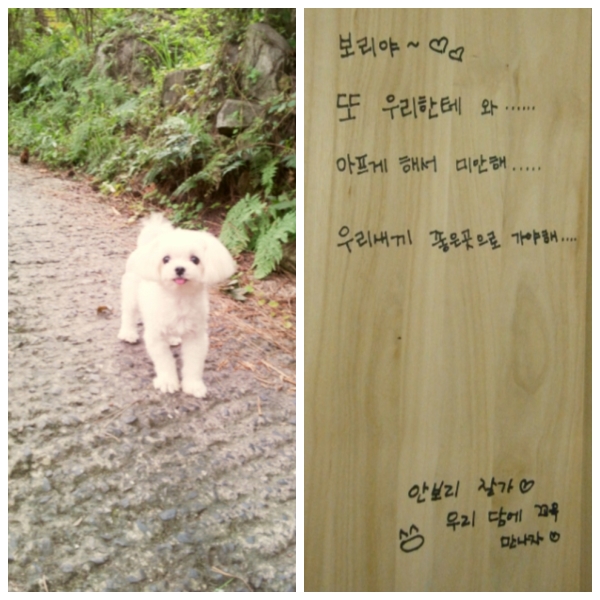 보리야~ ♡♡
또 우리한테 와......
아프게 해서 미안해.....
우리새끼 좋은곳으로 가야해....
안보리 잘가♡
우리 담에 꼬옥
만나자♡